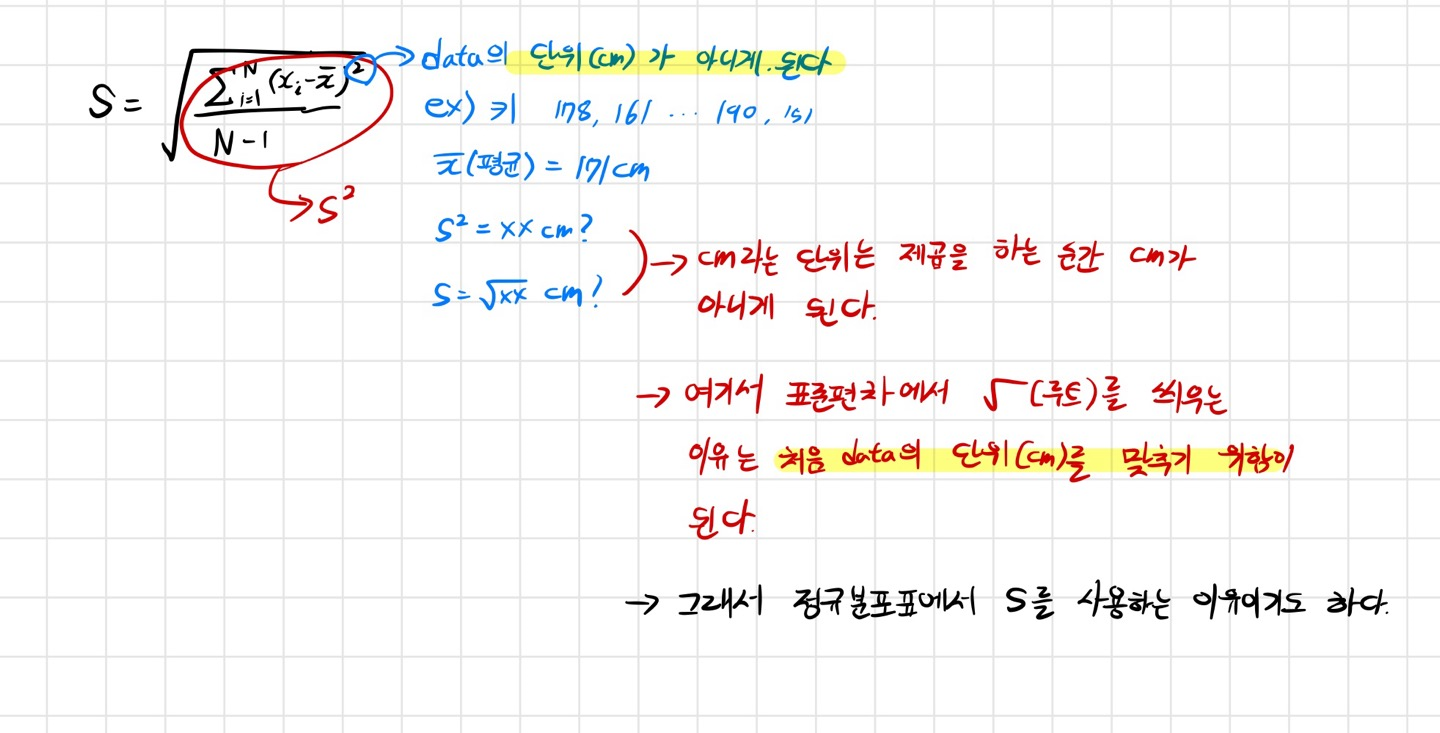 S = √(Σ_{i=1}^{N} (x_i - x̄)² / N-1)
→ S²
→ data의 단위(cm)가 아니게 된다
ex) 키 178, 161 ... 190, 151
x̄(평균) = 171cm
S² = xx cm?
S = √xx cm?
→ cm라는 단위는 제곱을 하는 순간 cm가
아니게 된다.
→ 여기서 표준편차에서 √(루트)를 씌우는
이유는 처음 data의 단위(cm)를 맞추기 위함이
된다.
→ 그래서 정규분포표에서 S를 사용하는 이유이기도 하다.